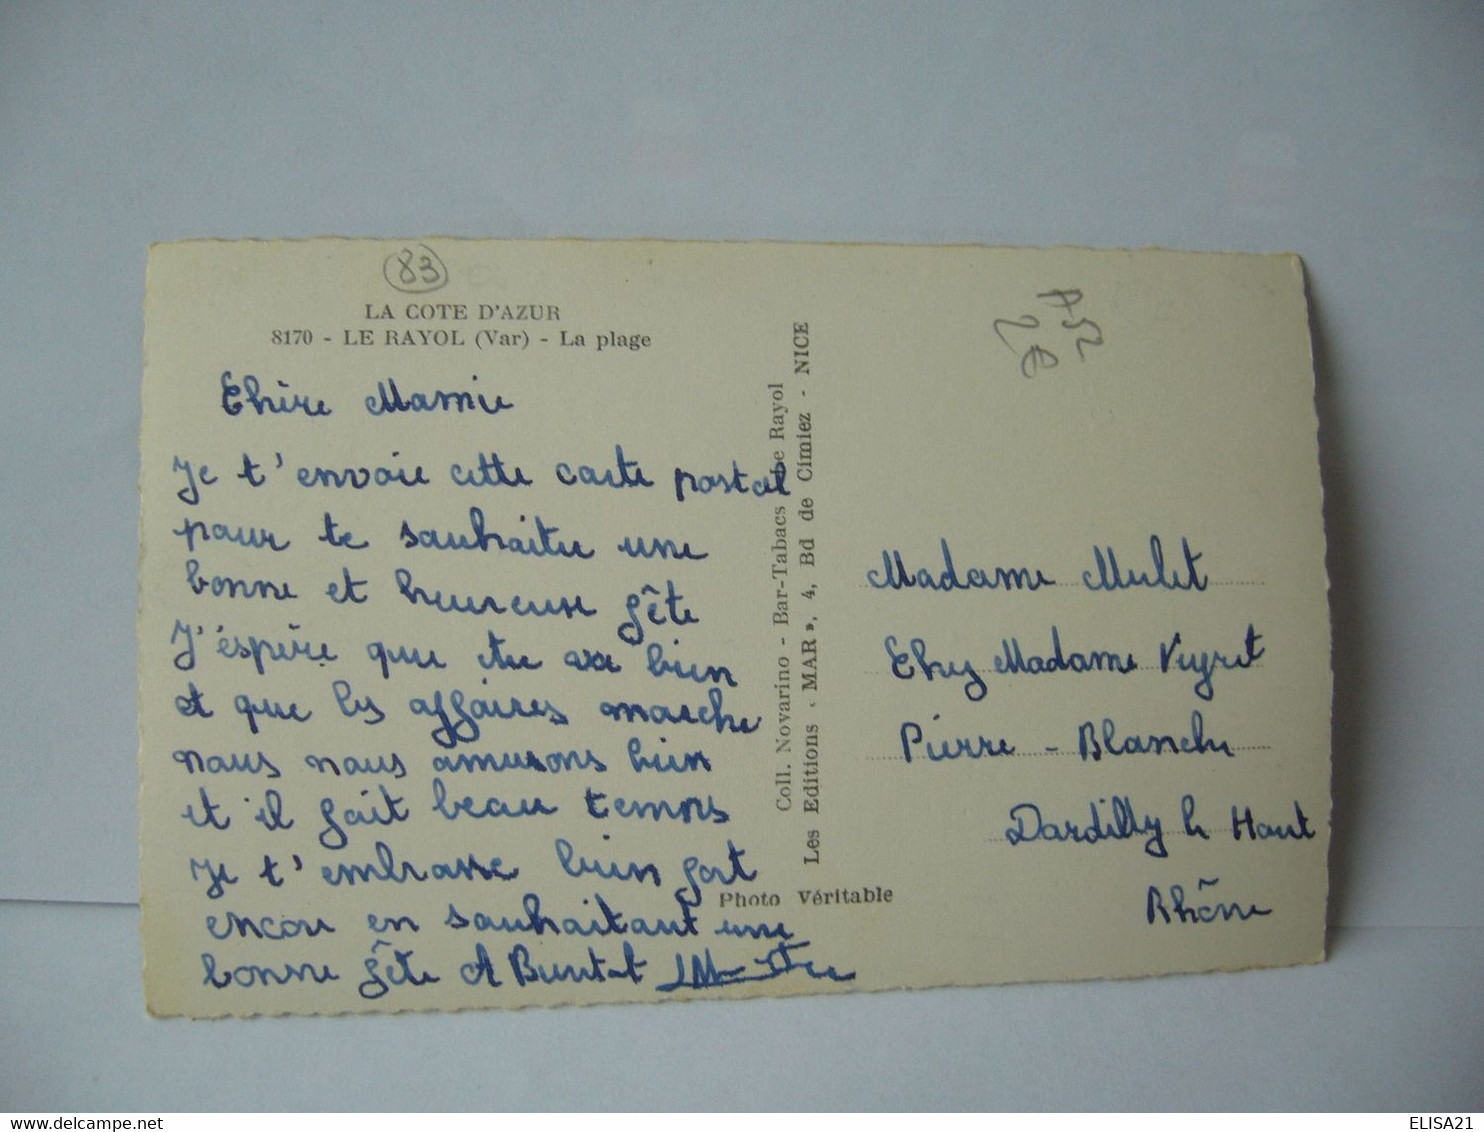 83
LA COTE D'AZUR
8170 - LE RAYOL (Var) - La plage
Chère Mamie
Je t'envoie cette carte postal
pour te souhaiter une
bonne et heureuse fête
J'éspère que tu va bien
et que les affaires marche
nous nous amusons bien
et il fait beau temps
Je t'embrasse bien fort
encore en souhaitant une
bonne fête
Coll. Novarino - Bar-Tabacs Le Rayol
Les Editions « MAR », 4, Bd de Cimiez - NICE
Photo Véritable
2€
Madame Mulet
Chez Madame Veyret
Pierre - Blanche
Dardilly le Haut
Rhône
ELISA21